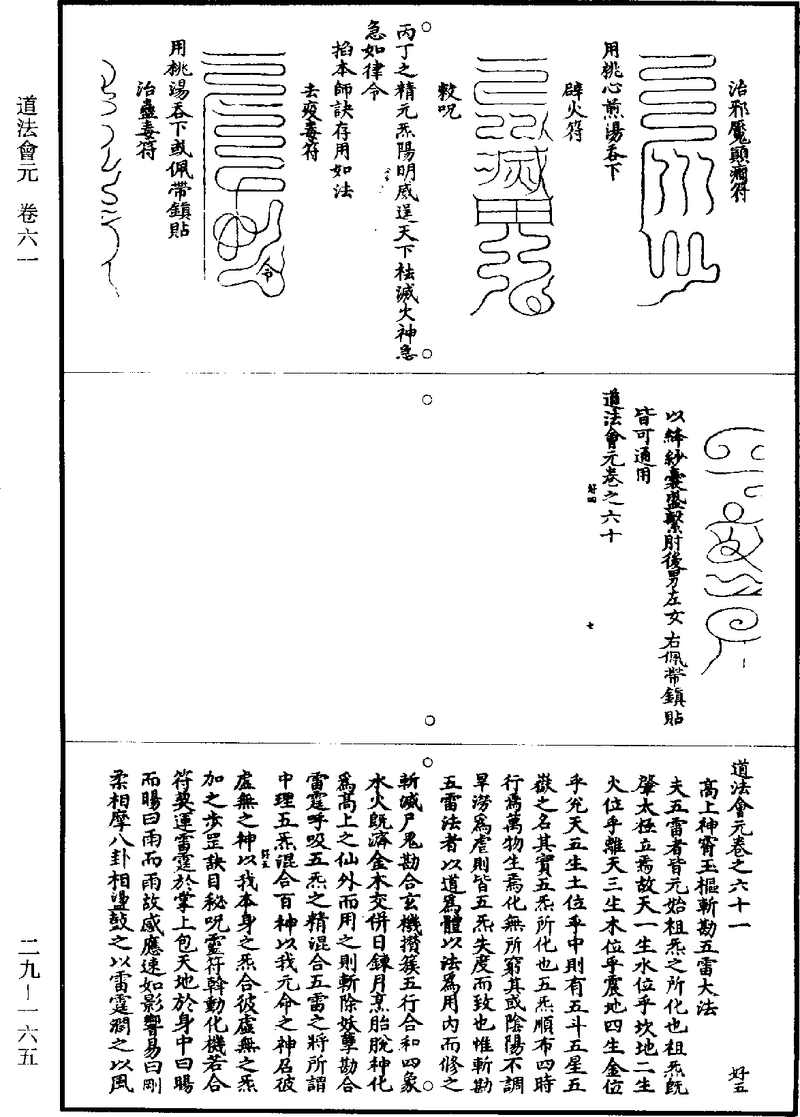 道法會元　卷六一
二九—一六五
治邪魔顛癇符
用桃心煎湯吞下
辟火符
敕呪
丙丁之精元炁陽明威逞天下袪滅火神急
急如律令
掐本師訣存用如法
去疫毒符
用桃湯吞下或佩帶鎮貼
治蠱毒符
以絳紗囊盛繫肘後男左女右佩帶鎮貼
皆可通用
道法會元卷之六十
好四
七
道法會元卷之六十一
好五
高上神霄玉樞斬勘五雷大法
夫五雷者皆元始祖炁之所化也祖炁既
肇太極立焉故天一生水位乎坎地二生
火位乎離天三生木位乎震地四生金位
乎兌天五生土位乎中則有五斗五星五
嶽之名其實五炁所化也五炁順布四時
行焉萬物生焉化無所窮其或陰陽不調
旱澇為虐則皆五炁失度而致也惟斬勘
五雷法者以道為體以法為用內而修之
斬滅尸鬼勘合玄機攢簇五行合和四象
水火既濟金木交併日鍊月烹胎脫神化
為高上之仙外而用之則斬除妖孽勘合
雷霆呼吸五炁之精混合五雷之將所謂
中理五炁混合百神以我元命之神召彼
好五
虛無之神以我本身之炁合彼虛無之炁
加之步罡訣目秘呪靈符斡動化機若合
符契運雷霆於掌上包天地於身中曰暘
而暘曰雨而雨故感應速如影響易曰剛
柔相摩八卦相盪鼓之以雷霆潤之以風